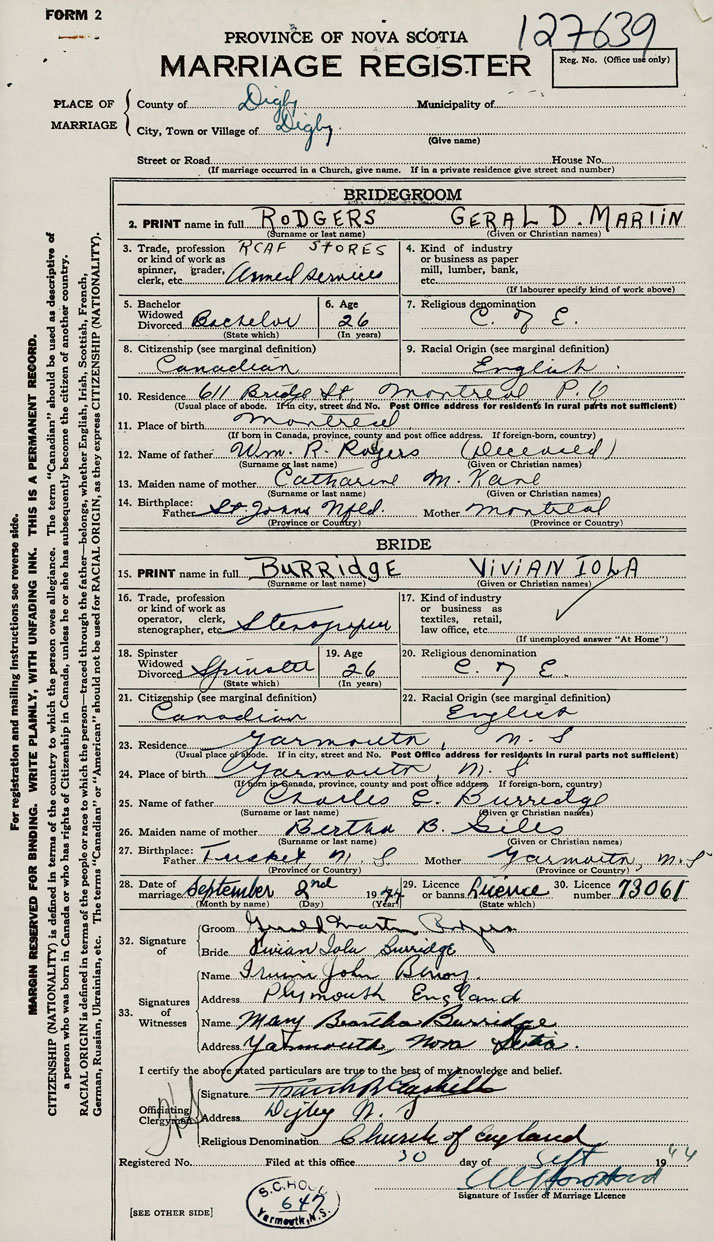 FORM 2
127639
PROVINCE OF NOVA SCOTIA
MARRIAGE REGISTER
Reg. No. (Office use only)
PLACE OF MARRIAGE
County of Digby Municipality of
City, Town or Village of Digby
(Give name)
Street or Road House No.
(If marriage occurred in a Church, give name. If in a private residence give street and number)
BRIDEGROOM
2. PRINT name in full RODGERS GERALD. MARTIN
(Surname or last name) (Given or Christian names)
3. Trade, profession or kind of work as spinner, grader, clerk, etc. RCAF STORES Armed Services
4. Kind of industry or business as paper mill, lumber, bank, etc.
(If labourer specify kind of work above)
5. Bachelor Widowed Divorced Bachelor
(State which)
6. Age 26
(In years)
7. Religious denomination C. of E.
8. Citizenship (see marginal definition) Canadian
9. Racial Origin (see marginal definition) English
10. Residence 611 Bridge St, Montreal P.Q
(Usual place of abode. If in city, street and No. Post Office address for residents in rural parts not sufficient)
11. Place of birth Montreal
(If born in Canada, province, county and post office address. If foreign-born, country)
12. Name of father Wm. R. Rogers (Deceased)
(Surname or last name) (Given or Christian names)
13. Maiden name of mother Catharine M. Kane
(Surname or last name) (Given or Christian names)
14. Birthplace: Father St. Johns Nfld. Mother Montreal
(Province or Country) (Province or Country)
BRIDE
15. PRINT name in full BURRIDGE VIVIAN IOLA
(Surname or last name) (Given or Christian names)
16. Trade, profession or kind of work as operator, clerk, stenographer, etc. Stenographer
17. Kind of industry or business as textiles, retail, law office, etc.
(If unemployed answer "At Home")
18. Spinster Widowed Divorced Spinster
(State which)
19. Age 26
(In years)
20. Religious denomination C. of E.
21. Citizenship (see marginal definition) Canadian
22. Racial Origin (see marginal definition) English
23. Residence Yarmouth, N. S
(Usual place of abode. If in city, street and No. Post Office address for residents in rural parts not sufficient)
24. Place of birth Yarmouth, N. S
(If born in Canada, province, county and post office address. If foreign-born, country)
25. Name of father Charles E. Burridge
(Surname or last name) (Given or Christian names)
26. Maiden name of mother Bertha B. Giles
(Surname or last name) (Given or Christian names)
27. Birthplace: Father Tusket, N. S Mother Yarmouth, N. S
(Province or Country) (Province or Country)
28. Date of marriage September 2nd 1944
(Month by name) (Day) (Year)
29. Licence or banns Licence
(State which)
30. Licence number 73061
32. Signature of
Groom Gerald Martin Rodgers
Bride Vivian Iola Burridge
33. Signatures of Witnesses
Name John
Address Plymouth England
Name Mary Beatha Burridge
Address Yarmouth, Nova Scotia.
I certify the above stated particulars are true to the best of my knowledge and belief.
Officiating Clergyman
Signature
Address Digby N. S
Religious Denomination Church of England
Registered No. Filed at this office 30 day of Sept 1944
Signature of Issuer of Marriage Licence
[SEE OTHER SIDE]
647
Yarmouth, N.S.
For registration and mailing instructions see reverse side.
MARGIN RESERVED FOR BINDING. WRITE PLAINLY, WITH UNFADING INK. THIS IS A PERMANENT RECORD.
CITIZENSHIP (NATIONALITY) is defined in terms of the country to which the person owes allegiance. The term "Canadian" should be used as descriptive of
a person who was born in Canada or who has rights of Citizenship in Canada, unless he or she has subsequently become the citizen of another country.
RACIAL ORIGIN is defined in terms of the people or race to which the person—traced through the father—belongs, whether English, Irish, Scottish, French,
German, Russian, Ukrainian, etc. The terms "Canadian" or "American" should not be used for RACIAL ORIGIN, as they express CITIZENSHIP (NATIONALITY).